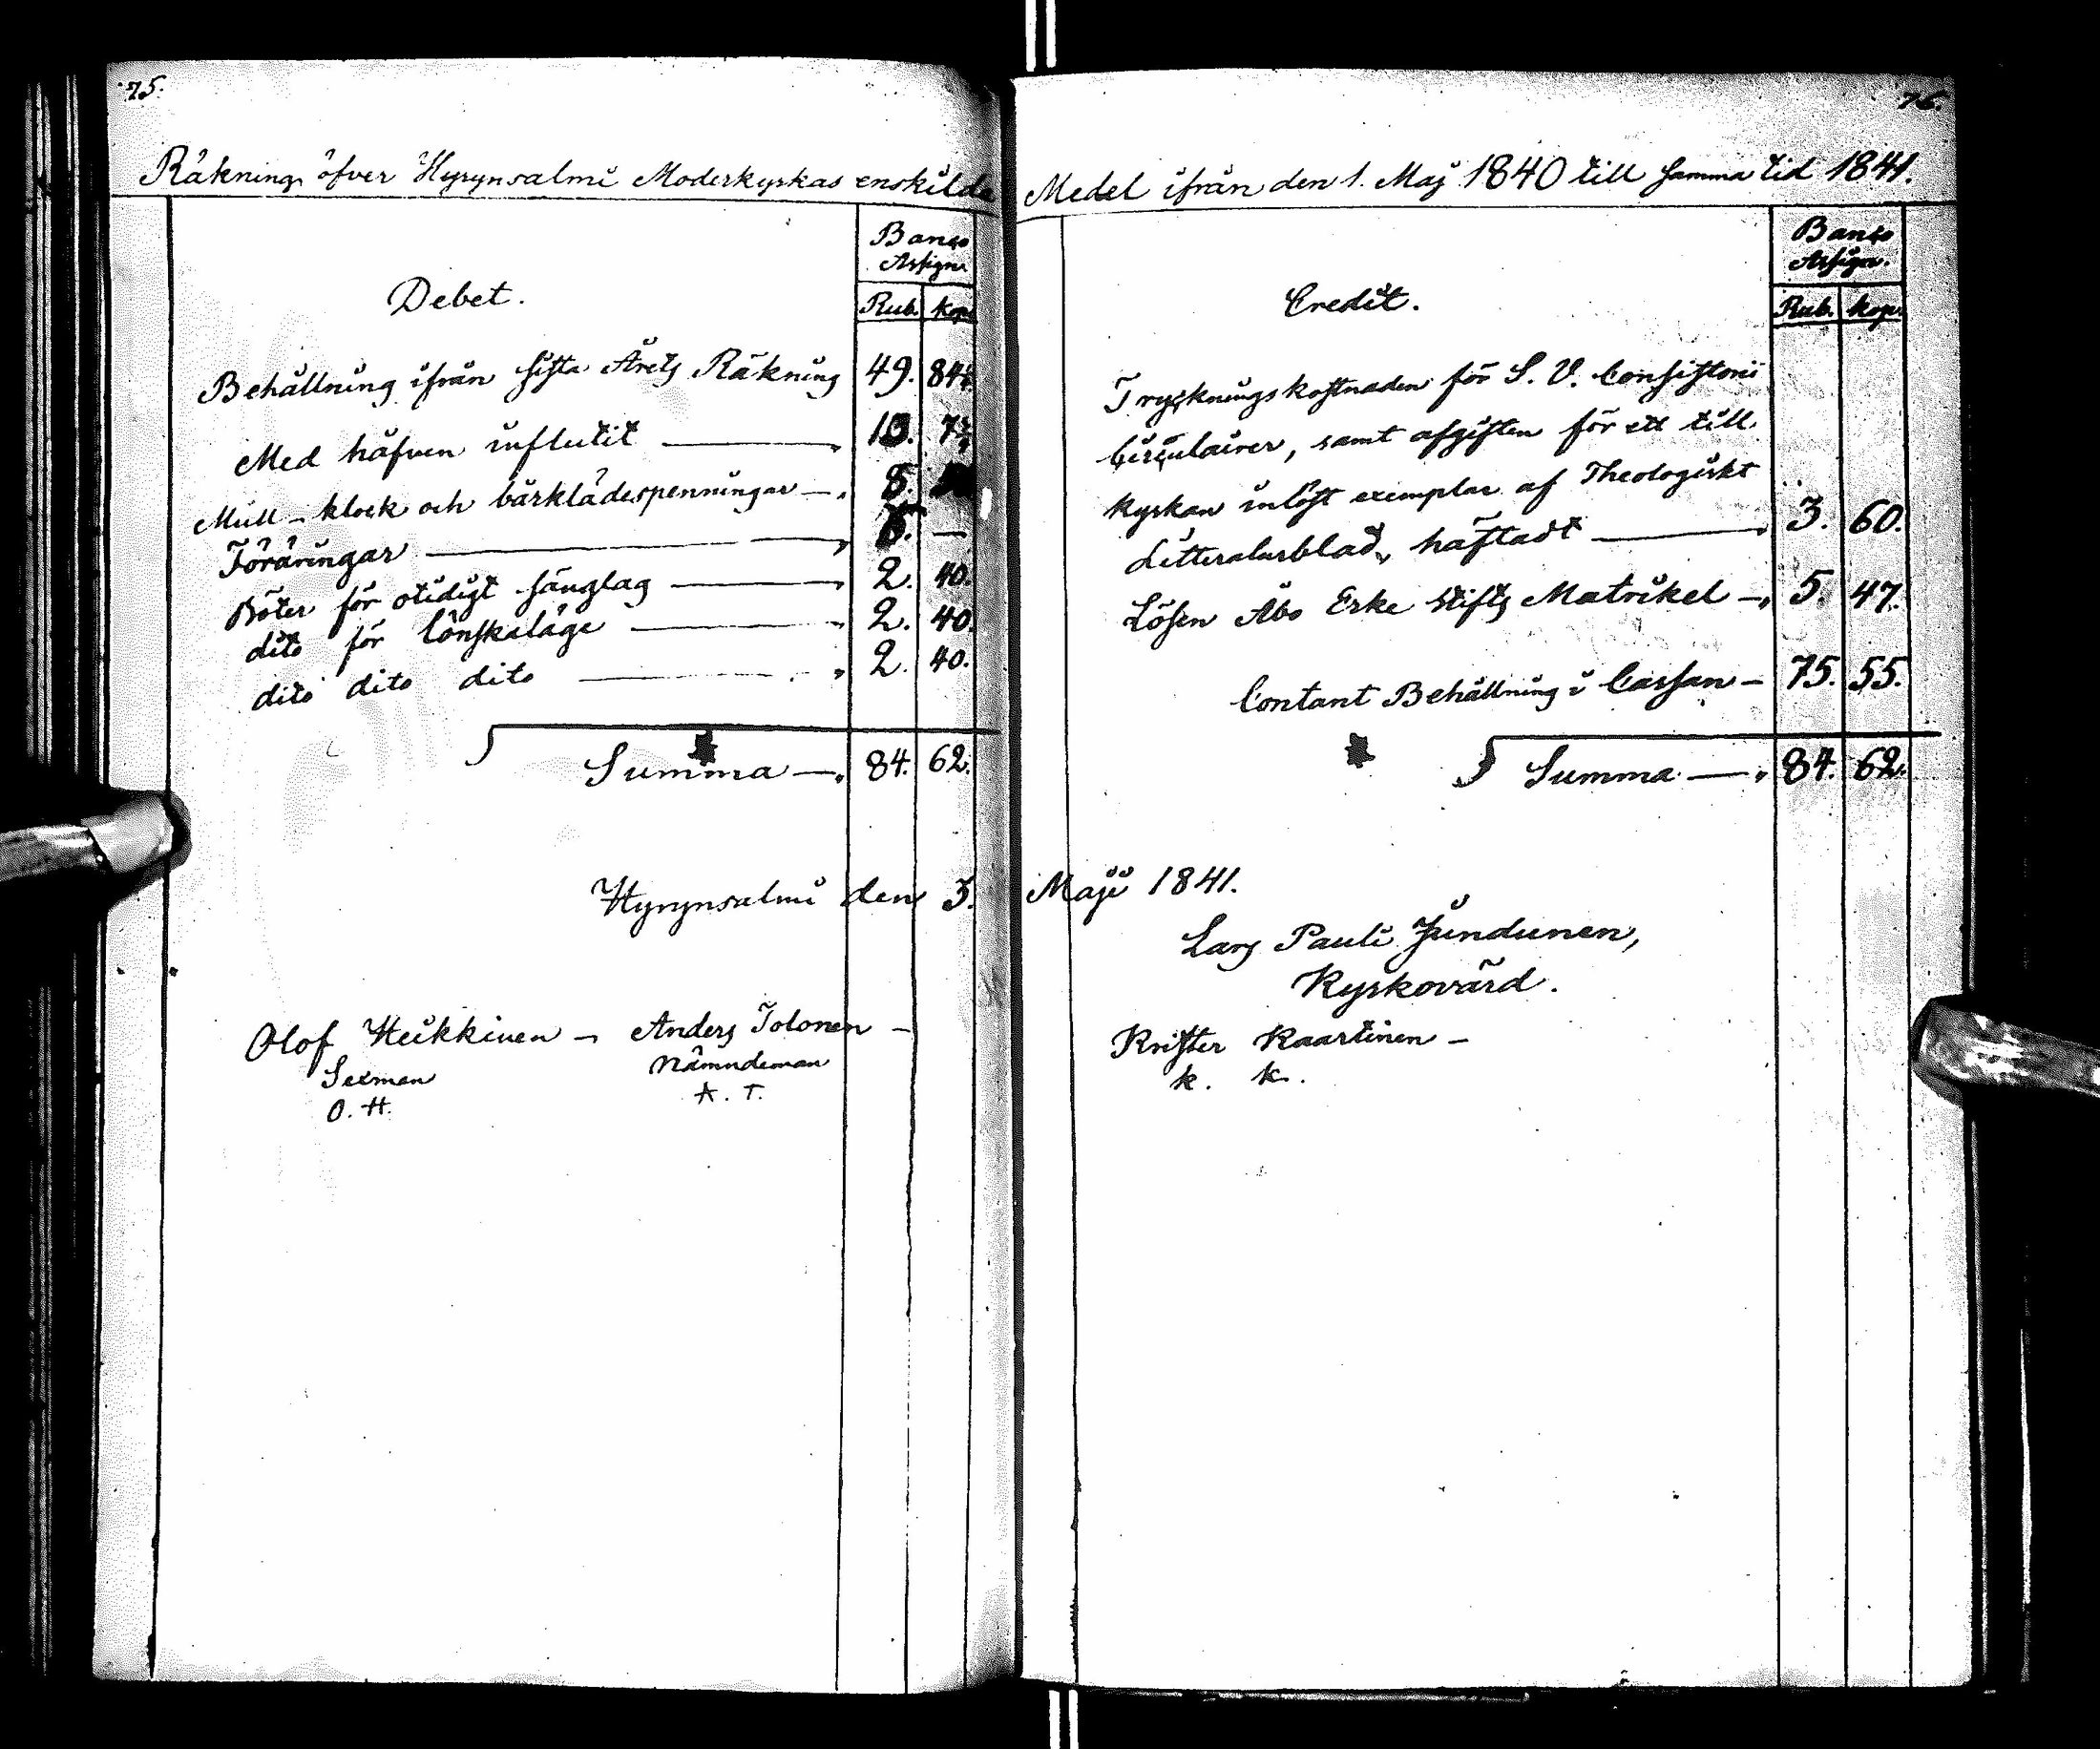 75.
Räkning öfver Hyrynsalmi Moderkyrkas enskilda
Banco
Assign.
Debet.
Rub. kop.
Behållning ifrån sista Årets Räkning 49. 84
Med håfven influtit — 10. 7
Mull- klock och bårklädespenningar — 8.
Föräringar — —
Böter för otidigt sänglag — 2. 40.
dito för lönskaläge — 2. 40.
dito dito dito — 2. 40.
Summa — 84. 62.
Hyrynsalmi den 3.
Olof Heikkinen — Anders Tolonen —
Sexman Nämndeman
O. H. A. T.
76.
Medel ifrån den 1. Maj 1840 till samma tid 1841.
Banco
Assign.
Credit.
Rub. kop.
Tryckningskostnaden för S. V. Consistorii
Circulairer, samt afgiften för ett till
kyrkan inlöst exemplar af Theologiskt
Litteraturblad, häftadt — 3. 60.
Lösen Åbo Erke Stifts Matrikel — 5. 47.
Contant Behållning i Cassan — 75. 55.
Summa — 84. 62.
Maji 1841.
Lars Pauli Jundunen,
Kyrkovärd.
Krister Kaartinen —
K. K.